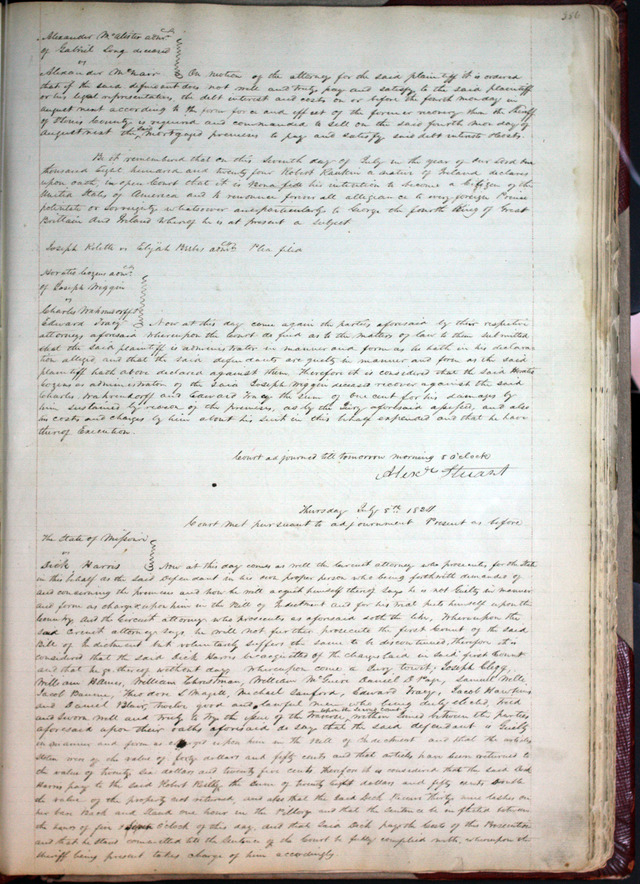 386
Alexander McAlister admr
of Gabriel Long deceased
vs
Alexander McNair On motion of the attorney for the said plaintiff it is ordered
that if the said defendant does not well and truly pay and satisfy to the said plaintiff
or his legal representatives, the debt interest and costs on or before the fourth monday in
august next according to the form force and effect of the former recovery then the Sheriff
of St Louis County is required and commanded to sell on the said fourth monday of
august next the mortgaged premises to pay and satisfy said debt interest & costs.
Be it remembered that on this Seventh day of July in the year of our Lord one
thousand eight hundred and twenty four Robert Rankin a native of Ireland declares
upon oath, in open Court that it is bona fide his intention to become a Citizen of the
United States of America and to renounce forever all allegiance to every foreign Prince
potentate or Sovereignty whatsoever and particularly to George the fourth King of Great
Brittain and Ireland whereof he is at present a Subject.
Joseph vs Elijah admr Plea filed
Horatio Cozens admr
of Joseph Wiggin
vs
Charles Wahrendorff &
Edward Tracy Now at this day come again the parties aforesaid by their respective
attorneys aforesaid Whereupon the Court do find as to the matters of law to them submitted
that the said plaintiff is administrator in manner and form as he hath in his declara
tion alleged and that the said defendants are guilty in manner and form as the said
plaintiff hath above declared against them. Therefore it is considered that the said Horatio
Cozens as administrator of the said Joseph Wiggin deceased recover against the said
Charles Wahrendorff and Edward Tracy the Sum of one cent for his damages by
him sustained by reason of the premises, as by the Jury aforesaid assessed, and also
his costs and charges by him about his suit in this behalf expended and that he have
thereof Execution.
Court adjourned till tomorrow morning 8 oclock
Alexr Stuart
Thursday July 8th 1824
Court met pursuant to adjournment Present as before
The State of Missouri
vs
Dick Harris Now at this day comes as well the Circuit attorney who prosecutes for the State
in this behalf as the said Defendant in his own proper person who being forthwith demanded of
and concerning the premises and how he will acquit himself thereof says he is not Guilty in manner
and form as charged upon him in the Bill of Indictment and for his trial puts himself upon the
Country, and the Circuit attorney who prosecutes as aforesaid doth the like, Whereupon the
said Circuit attorney says he will not further prosecute the first Count of the said
Bill of Indictment but voluntarily suffers the same to be discontinued, therefore it is
considered that the said Dick Harris be acquitted of the charges laid in said first Count
and that he go thereof without day. Whereupon come a Jury towit, Joseph Clegg,
William Hawes, William Christman, William McGuire Daniel D Page, Samuel Wells,
Jacob Theodore L Magill, Michael Sanford, Edward Tracy, Jacob Hawkins
and Daniel Blair, twelve good and lawful men who being duly elected, tried
upon the second count
and Sworn well and truly to try the issue of the traverse, within Joined between the parties
aforesaid upon their oaths aforesaid do say that the said defendant is Guilty
in manner and form as charged upon him in the Bill of Indictment and that the articles
Stolen were of the value of forty dollars and fifty cents and that articles have been returned to
the value of twenty six dollars and twenty five cents. Therefore it is considered that the said Dick
Harris pay to the said Robert the Sum of twenty eight dollars and fifty cents, double
the value of the property not returned, and also that the said Dick Receive Thirty nine lashes on
his bare Back and Stand one hour in the Pillory and that the Sentence be inflicted between
the hours of five O'Clock of this day, and that said Dick pay the Costs of this Prosecution
and that he stand committed till the Sentence of the Court be fully complied with, whereupon the
Sheriff being present takes charge of him accordingly.